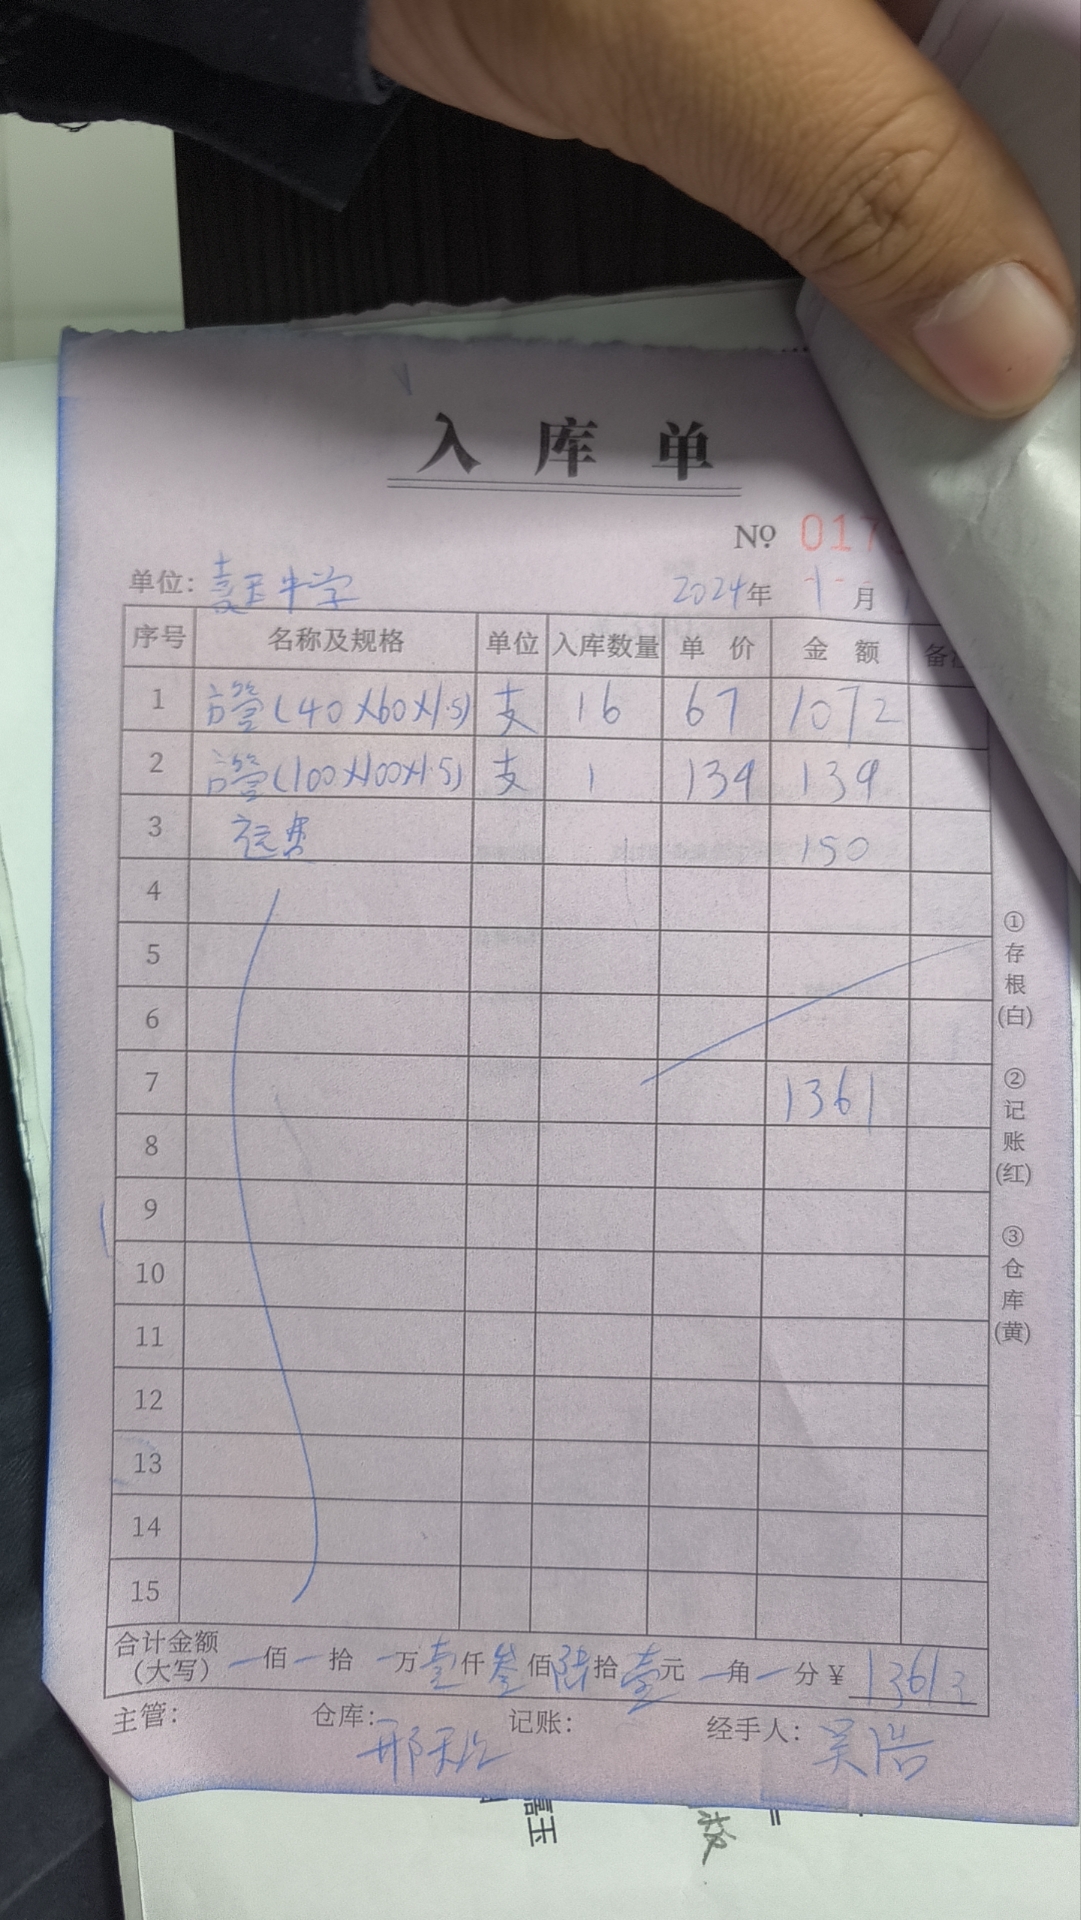 入库单
№ 017
单位：嘉玉中学 2024年 十一月
序号 名称及规格 单位 入库数量 单价 金额 备注
1 方管(40×60×1.5) 支 16 67 1072
2 方管(100×100×1.5) 支 1 139 139
3 运费 150
4
5
6
7 1361
8
9
10
11
12
13
14
15
合计金额（大写） 佰 拾 万 壹仟 叁佰 陆拾 壹元 角 分 ¥ 1361
主管： 仓库： 记账： 经手人：吴浩
①存根(白) ②记账(红) ③仓库(黄)
嘉玉